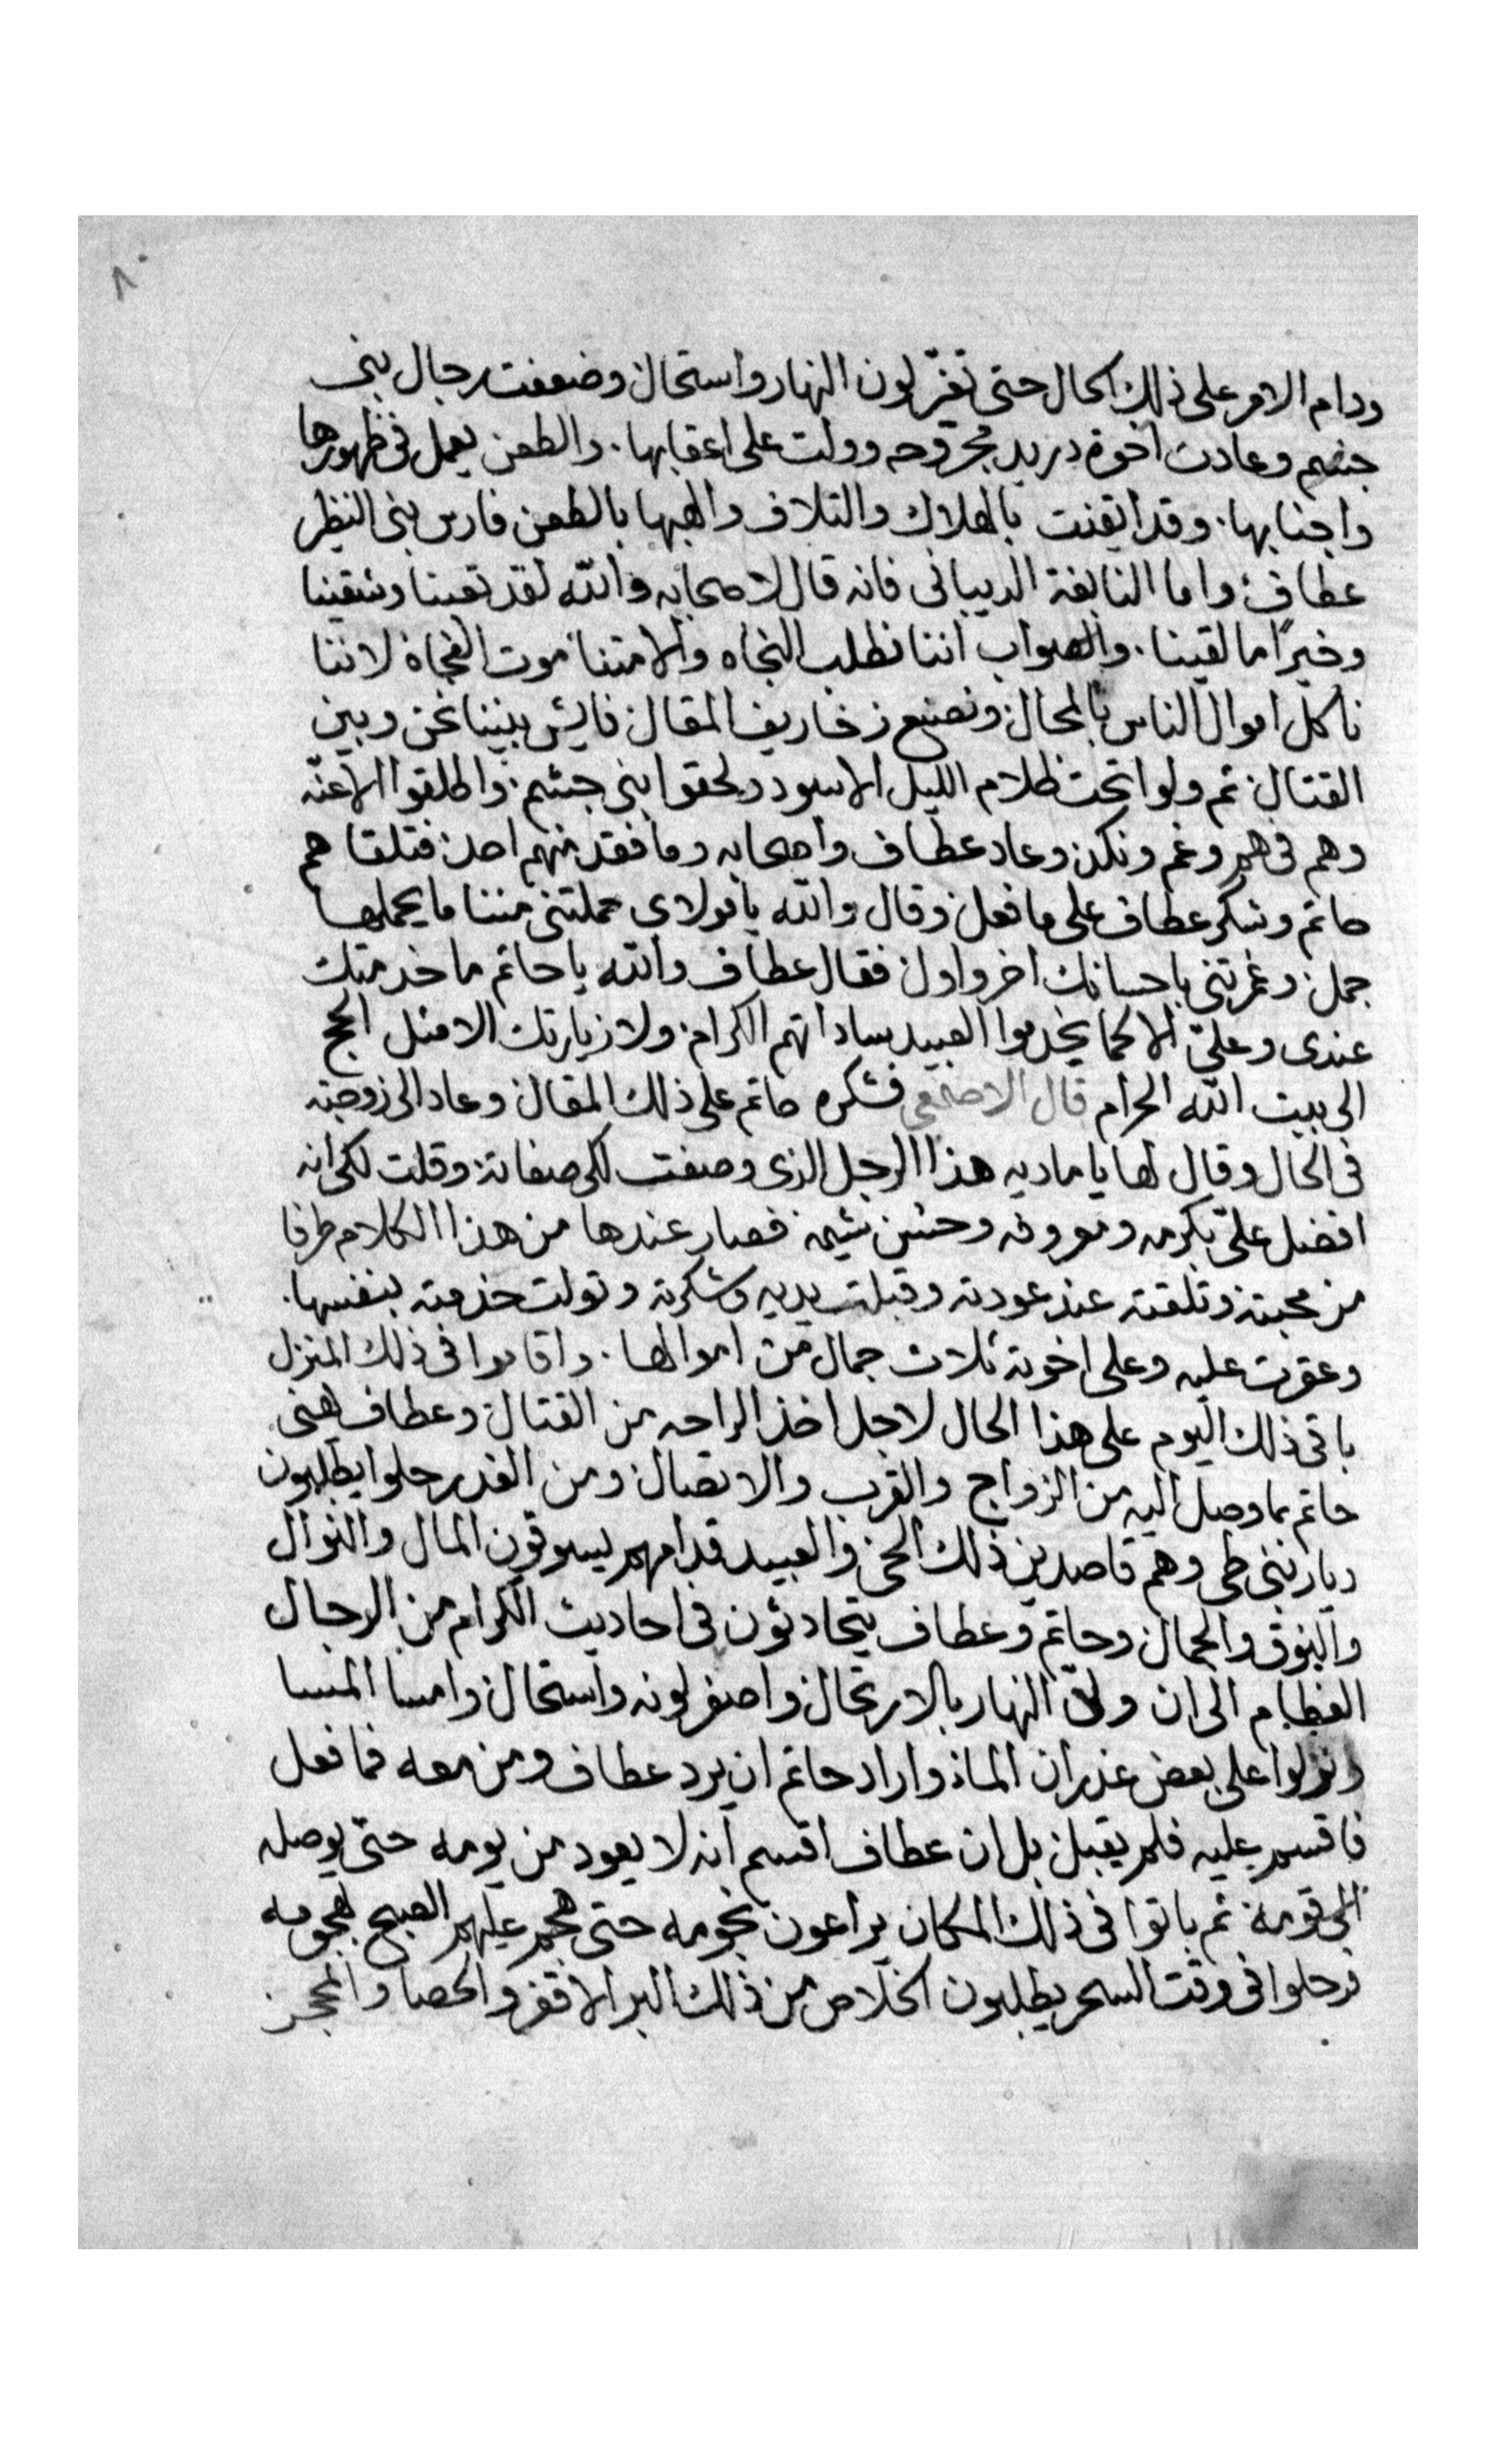 ٨٠
ودام الامر على ذلك الحال حتى تغيّر لون النهار واستحال وضعفت رجال بني
جشم وعادت اخوة دريد مجروحه وولت على اعقابها . والطعن يعمل في ظهورها
واجنابها . وقد ايقنت بالهلاك والتلاف والهبها بالطعن فارس بني النظر
عطاف واما النابغة الديباني فانه قال لاصحابه والله لقد تعبنا وشقينا
وخيرًا ما لقينا . والصواب اننا نطلب النجاه والا متنا موت الفجاة لاننا
ناكل اموال الناس بالمحال ونصنع زخاريف المقال فايش بيننا نحن وبين
القتال ثم ولوا تحت ظلام الليل الاسود ولحقوا بني جشم واطلقوا الاعنّه
وهم في هم وغم ونكد وعاد عطاف واصحابه وما فقد منهم احد فتلقاهم
حاتم وشكر عطاف على ما فعل وقال والله يا مولاى حملتني مننا ما يحملها
جمل وغمرتني باحسانك اخر واول فقال عطاف والله يا حاتم ما خدمتك
عندى وعليّ الا كما يخدموا العبيد ساداتهم الكرام ولا زيارتك الا مثل الحج
الى بيت الله الحرام قال الاصمعي فشكره حاتم على ذلك المقال وعاد الى زوجته
في الحال وقال لها يا ماديه هذا الرجل الذي وصفت لكي صفاته وقلت لكي انه
افضل عليّ بكرمه ومعروفه وحسن شيمه فصار عندها من هذا الكلام طرفا
من محبته وتلقته عند عودته وقبلت يديه وشكرته وتولت خدمته بنفسها .
وعقرت عليه وعلى اخوته ثلاث جمال من اموالها . واقاموا في ذلك المنزل
باقي ذلك اليوم على هذا الحال لاجل اخذ الراحه من القتال وعطاف يهني
حاتم بما وصل اليه من الزواج والقرب والاتصال ومن الغد رحلوا يطلبون
ديار بني طي وهم قاصدين ذلك الحي والعبيد قدامهم يسوقون المال والنوال
والنوق والجمال وحاتم وعطاف يتحادثون في احاديث الكرام من الرجال
العظام الى ان ولّى النهار بالارتحال واصفر لونه واستحال وامسا المسا
ونزلوا على بعض غدران الماء واراد حاتم ان يرد عطاف ومن معه فما فعل
فاقسم عليه فلم يقبل بل ان عطاف اقسم انه لا يعود من يومه حتى يوصله
الى قومه ثم باتوا في ذلك المكان يراعون نجومه حتى هجم عليهم الصبح بهجومه
فرحلوا في وقت السحر يطلبون الخلاص من ذلك البر الاقفر والحصا والحجر